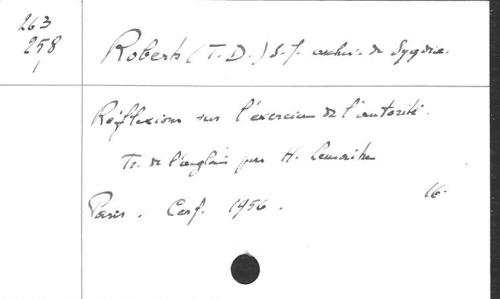 263
258
Roberts (T. D.) S. J. archev. de
Réflexions sur l'exercice de l'autorité.
Tr. de l'anglais par H.
Paris. Cerf. 1956. 16-